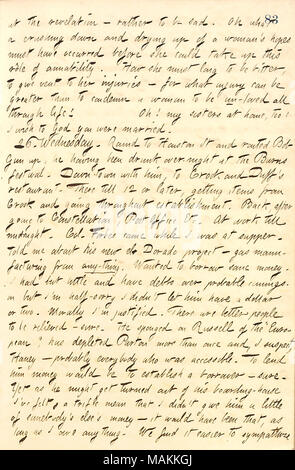 83
at the revelation — rather to be sad. Oh what
a crushing down and drying up of a woman's hopes
must have occurred before she could take up this
rôle of amiability. How she must long to be bitter,
to give vent to her injuries — for what injury can be
greater than to condemn a woman to be un-loved all
through life! Oh! my sisters at home, too!
I wish to God you were married!
26. Wednesday. Round to Houston St and routed Bob
Gun up, he having been drunk over night at the Burns
festival. Down town with him, to Crook and Duff's
restaurant. There till 12 or later, getting items from
Crook and going throughout establishment. Back, after
gone to Constellation, Post Office, &c. At work till
midnight. Col. Forbes came while I was at supper,
told me about his new do Dorado project — gas manu-
facturing from any-thing. Wanted to borrow some money.
I had but little and have debts over probable incomings
on but I'm half-sorry I didn't let him have a dollar
or two. Morally I'm justified. There are better people
to be relieved — sure. He sponged on Russell of the "Euro-
pean", has depleted Porton more than once and, I suspect,
Haney — probably everybody who was accessible. To lend
him money would be to establish a borrower — sure.
Yet as he might get turned out of his boarding-house
I've felt a trifle mean that I didn't give him a little
of somebody's else's money — it would have been that, as
long as I owe anything. We find it easier to sympathize
alamy
MAKKGJ